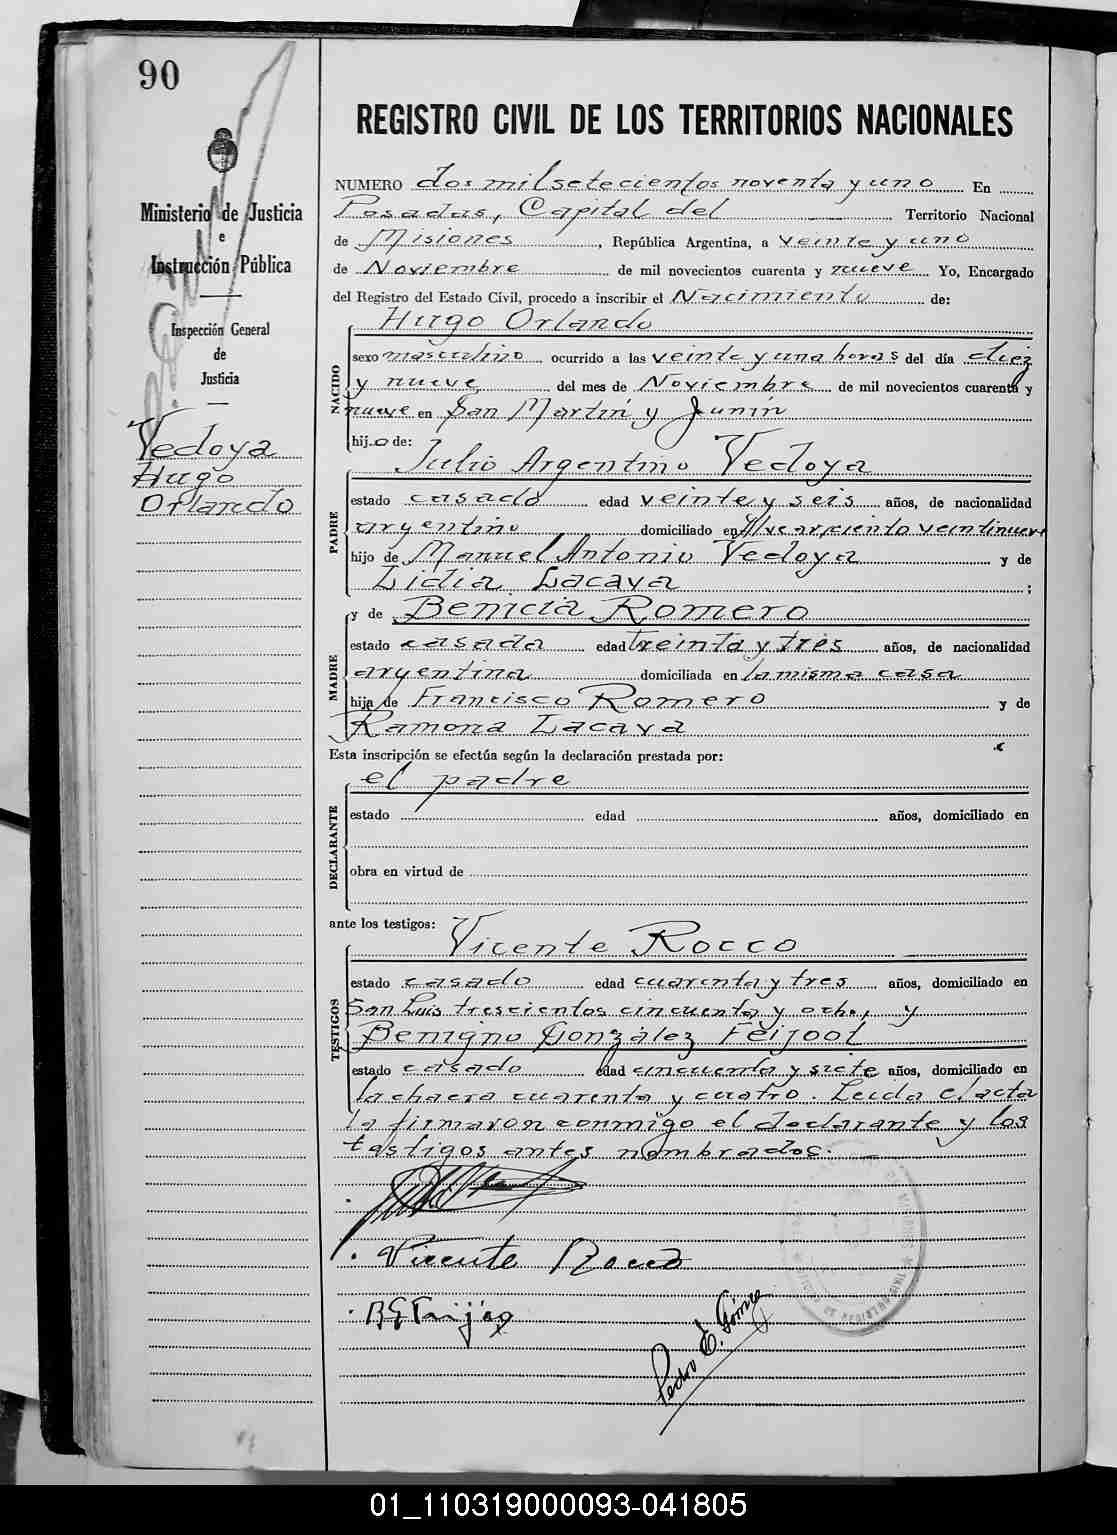 90
REGISTRO CIVIL DE LOS TERRITORIOS NACIONALES
Ministerio de Justicia
e
Instrucción Pública
Inspección General
de
Justicia
Vedoya
Hugo
Orlando
NUMERO dos mil setecientos noventa y uno En
Posadas, Capital del Territorio Nacional
de Misiones, República Argentina, a veinte y uno
de Noviembre de mil novecientos cuarenta y nueve Yo, Encargado
del Registro del Estado Civil, procedo a inscribir el Nacimiento de:
NACIDO
Hugo Orlando
sexo masculino ocurrido a las veinte y una horas del día diez
y nueve del mes de Noviembre de mil novecientos cuarenta y
nueve en San Martín y Junín
hijo de:
PADRE
Julio Argentino Vedoya
estado casado edad veinte y seis años, de nacionalidad
argentino domiciliado en Alvear ciento veintinueve
hijo de Manuel Antonio Vedoya y de
Lidia Lacava ;
MADRE
y de Benicia Romero
estado casada edad treinta y tres años, de nacionalidad
argentina domiciliada en la misma casa
hija de Francisco Romero y de
Ramona Lacava
Esta inscripción se efectúa según la declaración prestada por:
DECLARANTE
el padre
estado edad años, domiciliado en
obra en virtud de
ante los testigos:
TESTIGOS
Vicente Rocco
estado casado edad cuarenta y tres años, domiciliado en
San Luis trescientos cincuenta y ocho, y
Benigno González Feijoot
estado casado edad cincuenta y siete años, domiciliado en
la chacra cuarenta y cuatro. Leída el acta
la firmaron conmigo el declarante y los
testigos antes nombrados.
Vicente Rocco
Pedro E. Gómez
01_110319000093-041805